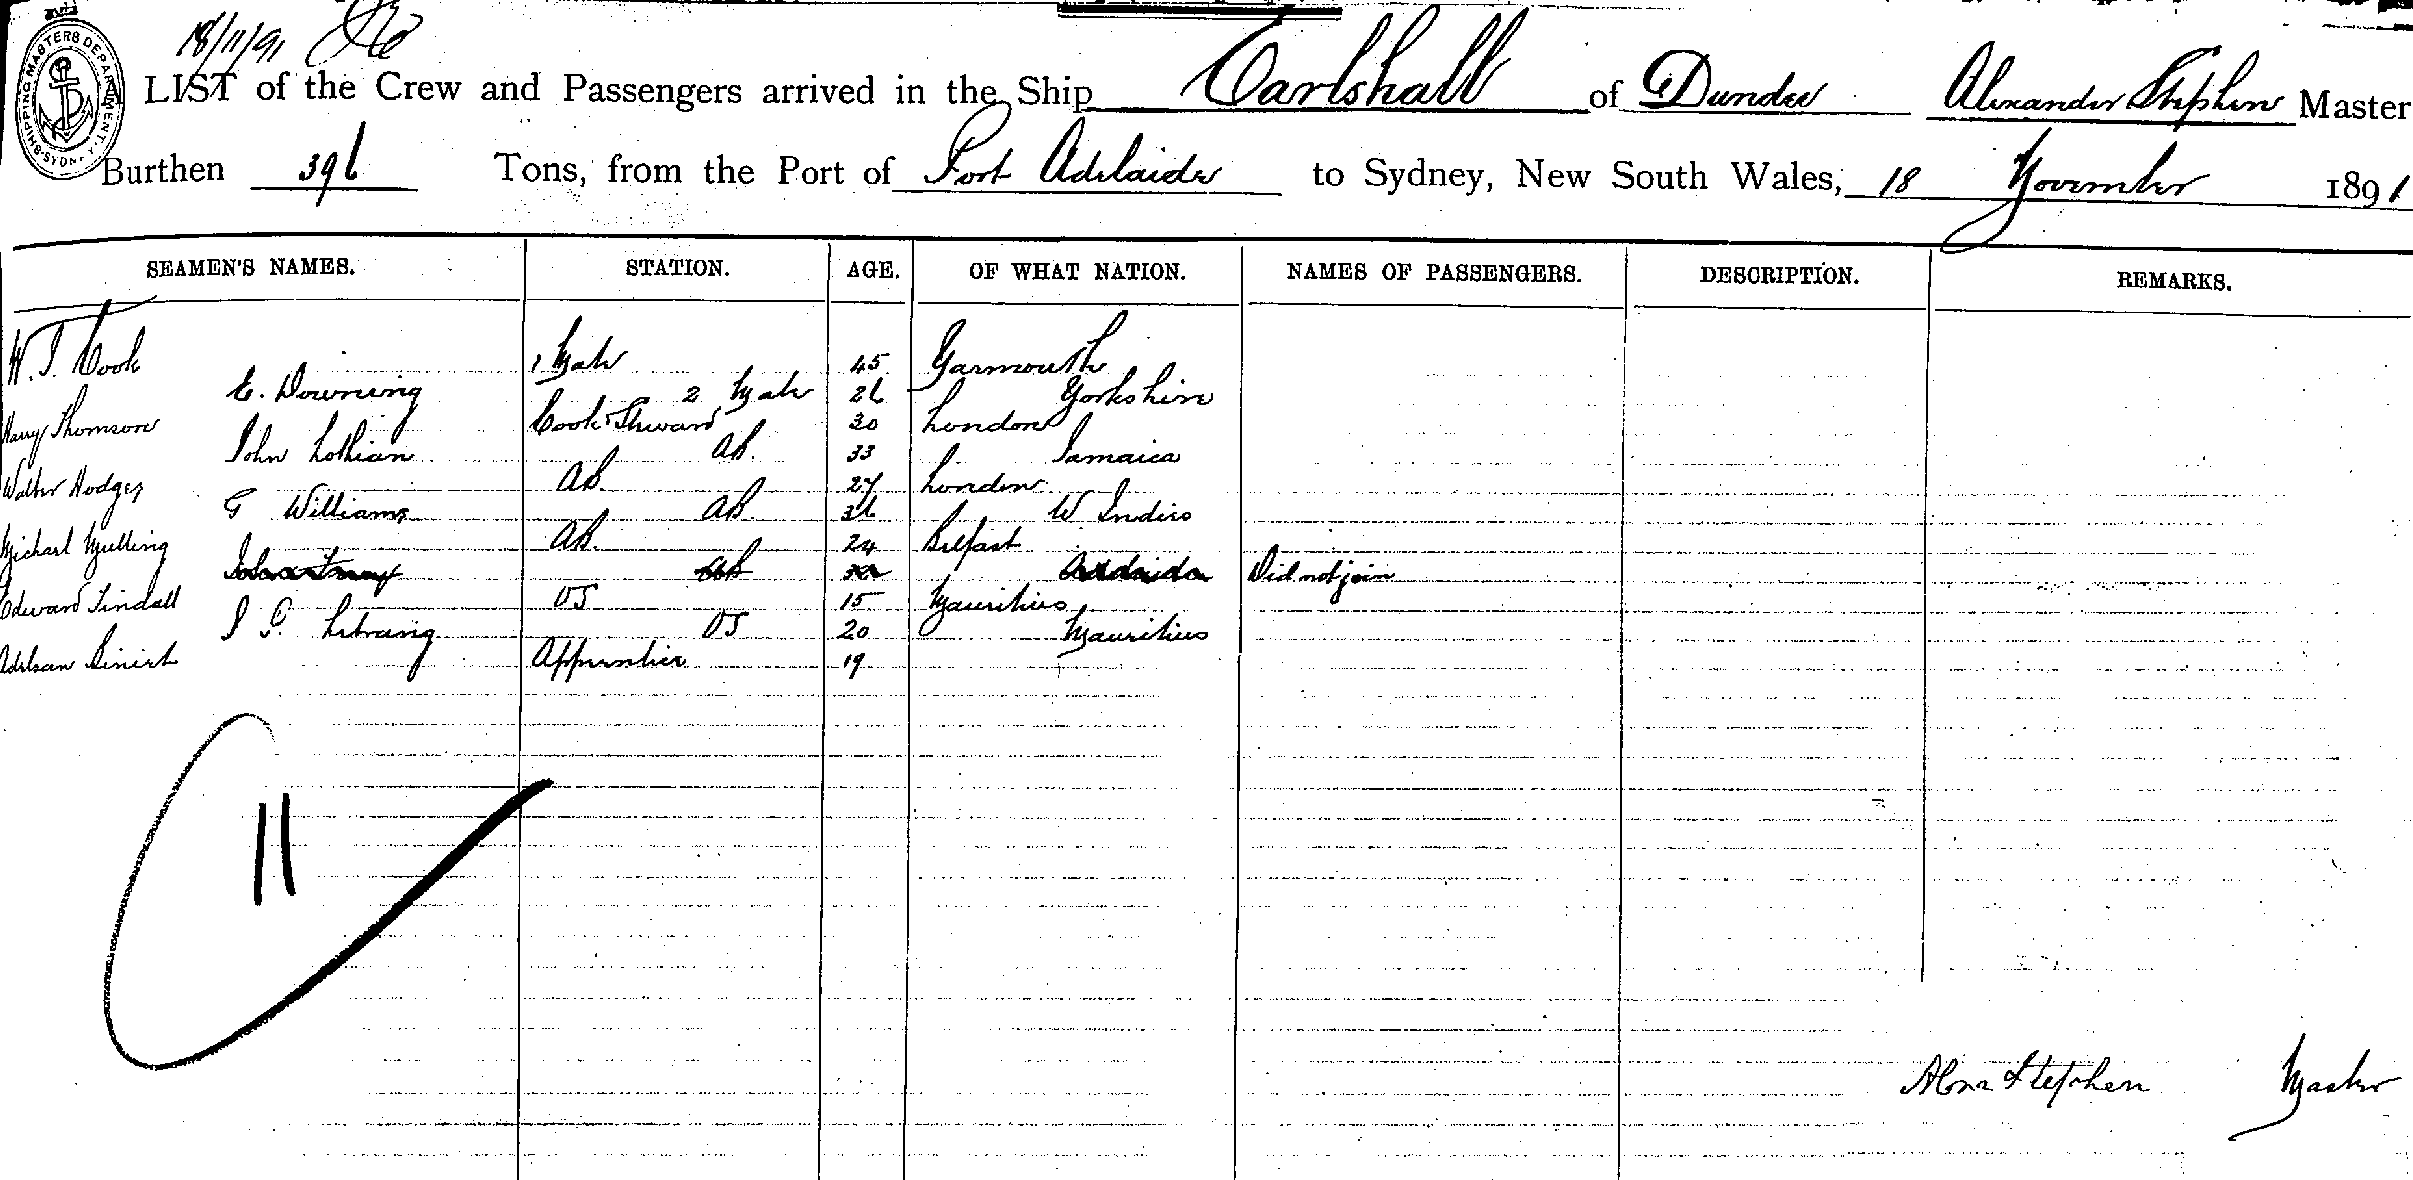 18/11/91
SHIPPING MASTERS DEPARTMENT. SYDNEY
LIST of the Crew and Passengers arrived in the Ship Earlshall of Dundee Alexander Stephen Master
Burthen 396 Tons, from the Port of Port Adelaide to Sydney, New South Wales, 18 November 1891
SEAMEN'S NAMES. STATION. AGE. OF WHAT NATION. NAMES OF PASSENGERS. DESCRIPTION. REMARKS.
W. J. Cook 1 Mate 45 Yarmouth
E. Downing 2 Mate 26 Yorkshire
Harry Thomson Cook & Steward 30 London
John Lothian AB. 33 Jamaica
Walter Hodges AB. 27 London
G Williams AB. 36 W Indies
Michael Mulling AB. 24 Belfast
AB Adelaide Did not join
Edward Tindall OS 15 Mauritius
OS 20 Mauritius
Apprentice 19
11
Alexr Stephen Master